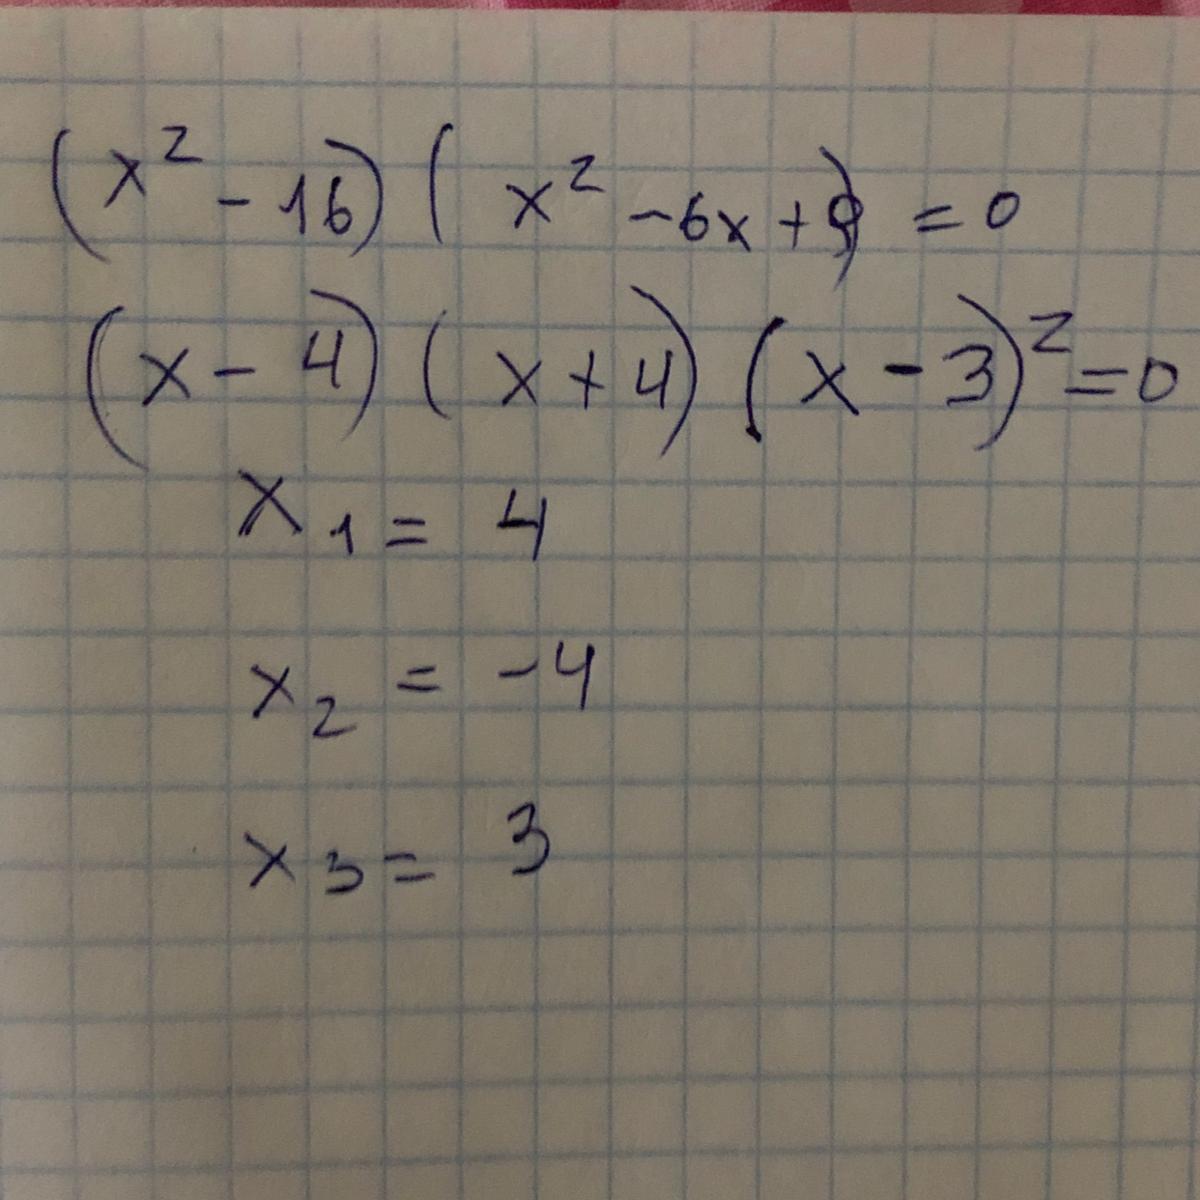 (x² - 16) ( x² - 6x + 9) = 0
(x - 4) ( x + 4) (x - 3)² = 0
x₁ = 4
x₂ = -4
x₃ = 3